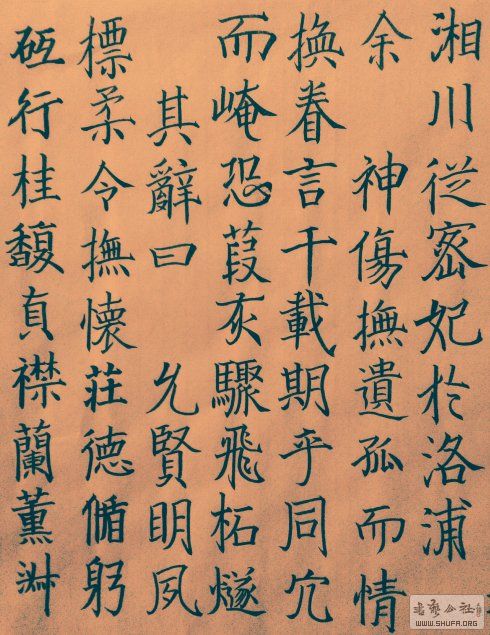 湘川從密妃於洛浦
余 神傷撫遺孤而情
換眷言千載期乎同穴
而崦恐葭灰驟飛柘燧
其辭曰 允賢明夙
標柔令撫懷莊德循躬
砥行桂馥貞襟蘭薰淑
书艺公社
WWW.SHUFA.ORG